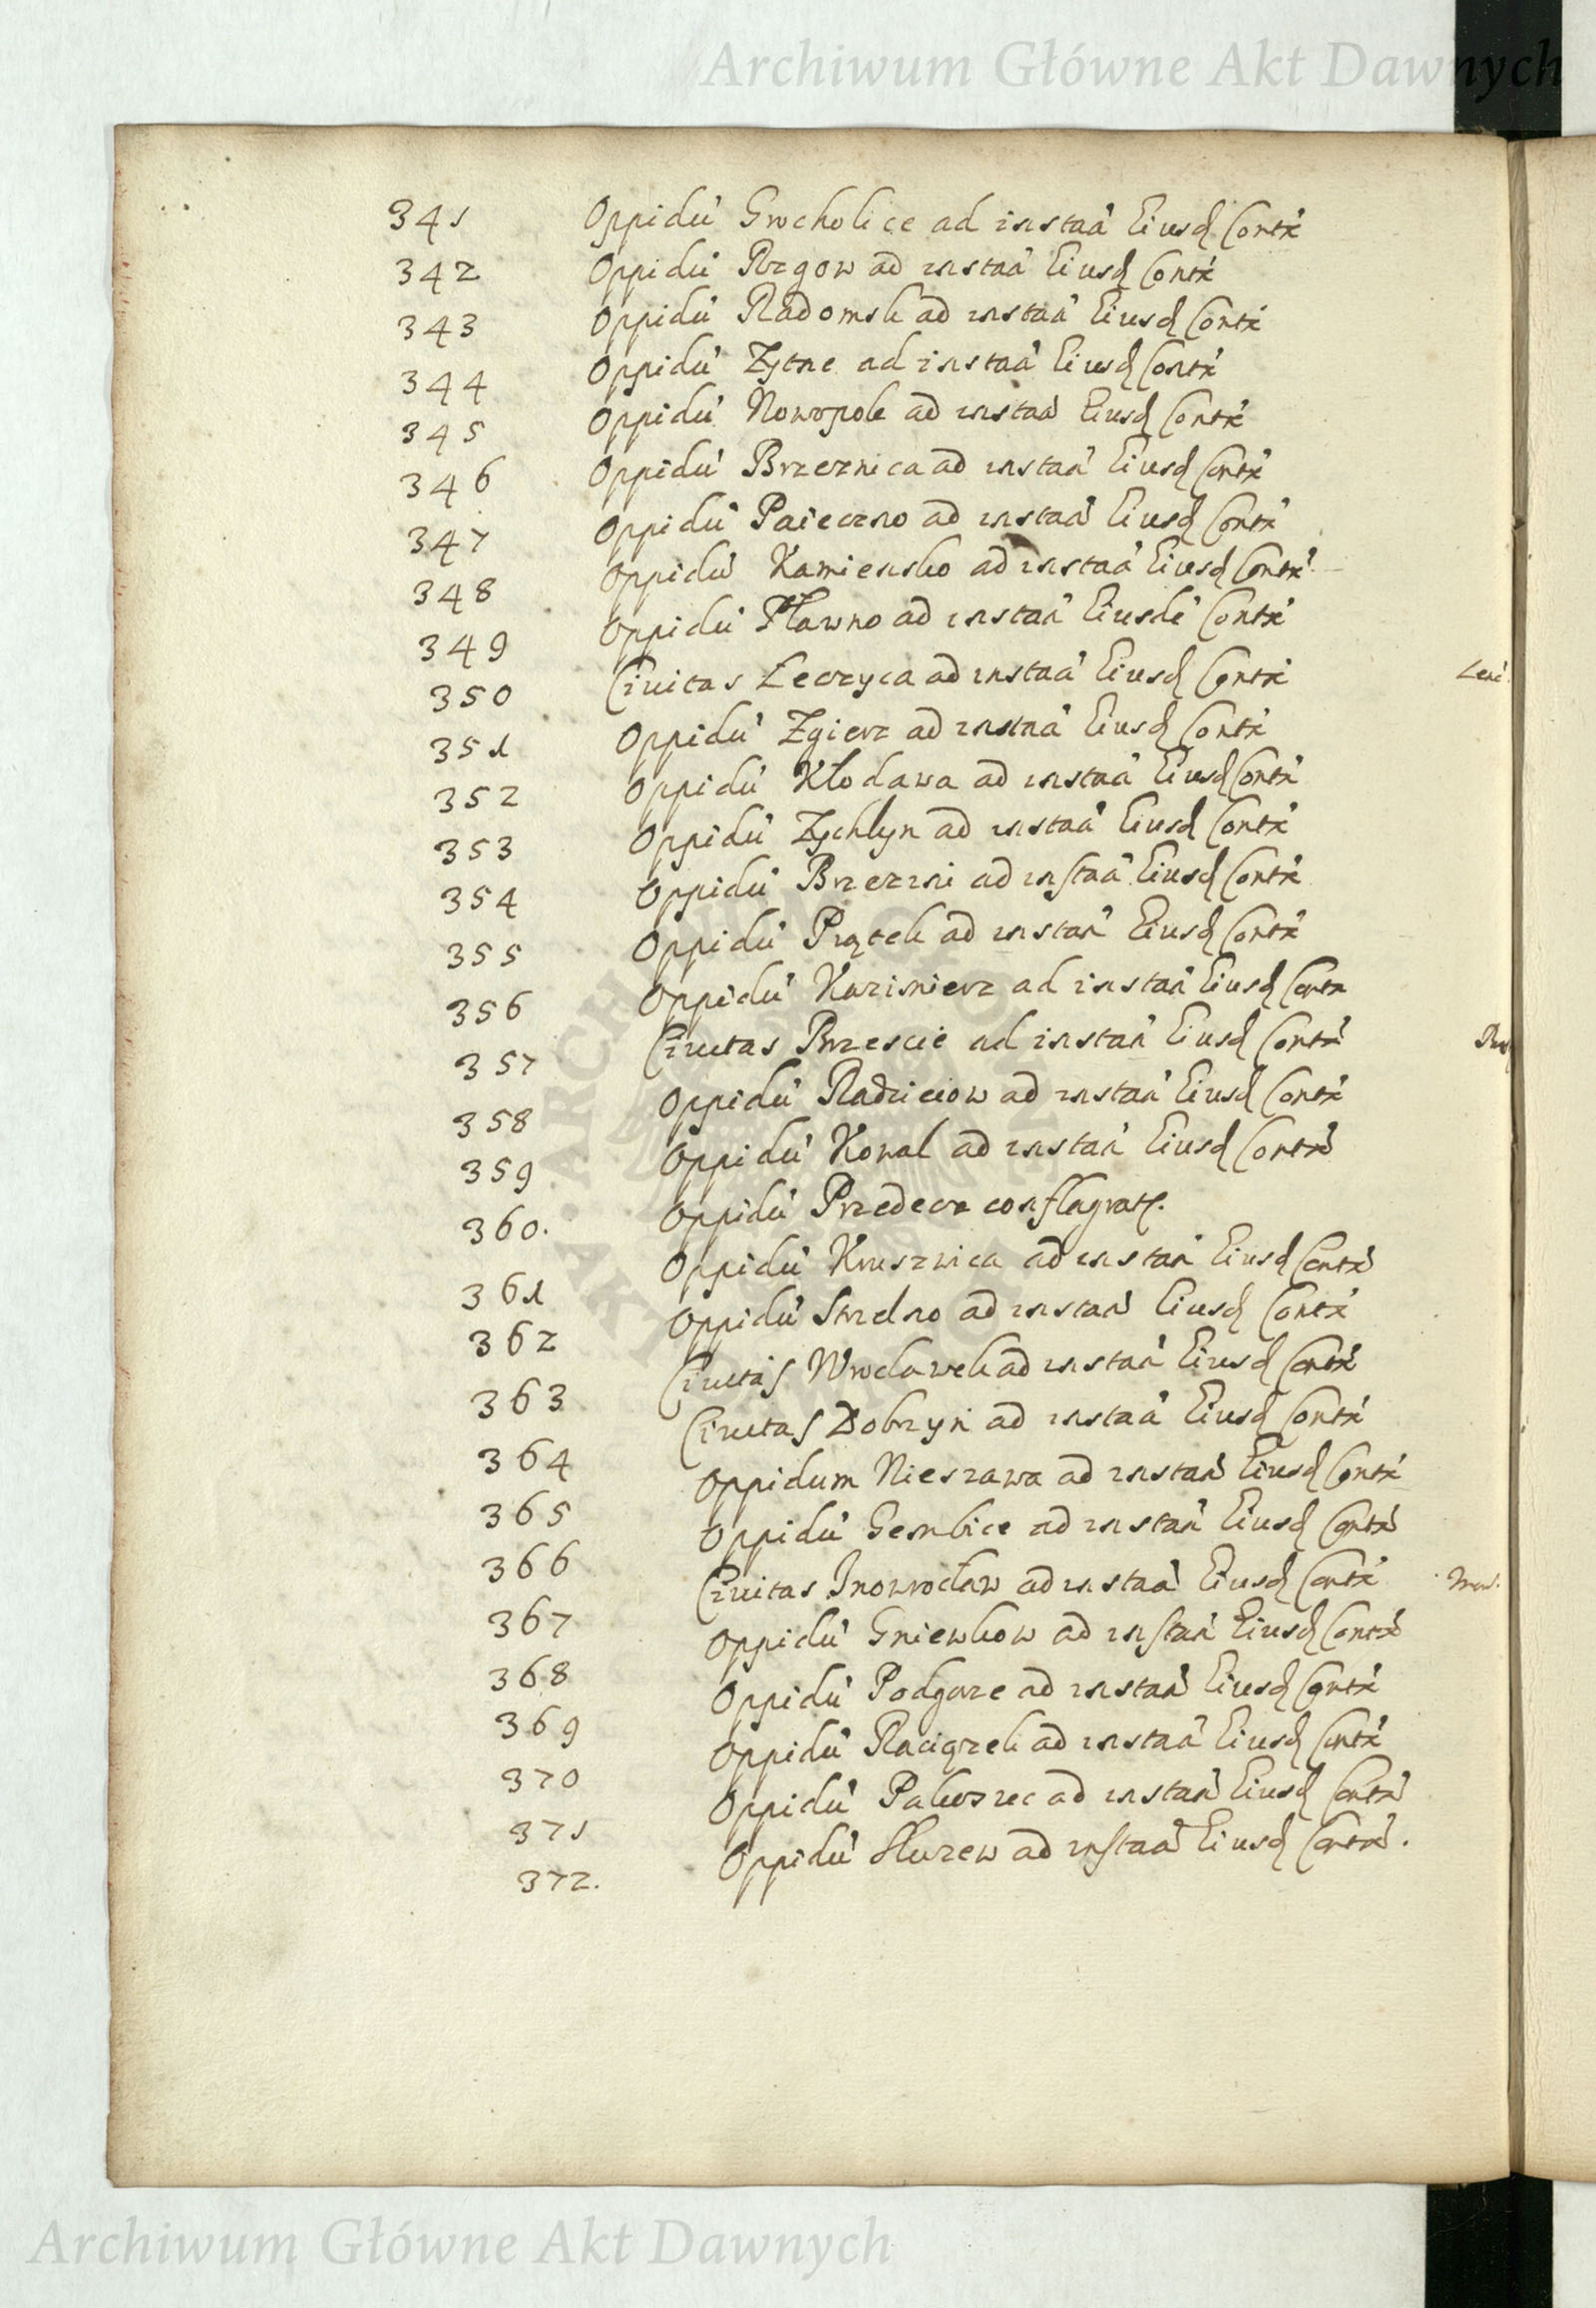 Archiwum Główne Akt Dawnych
341 Oppidu' Grocholice ad instaã Eiusd Contx
342 Oppidu' Rzgow ad instaã Eiusd Contx
343 Oppidu' Radomsk ad instaã Eiusd Contx
344 Oppidu' Zytne ad instaã Eiusd Contx
345 Oppidu' Nowopole ad instaã Eiusd Contx
346 Oppidu' Brzeznica ad instaã Eiusd Contx
347 Oppidu' Paieczno ad instaã Eiusd Contx
348 Oppidu' Kamiensko ad instaã Eiusd Contx
349 Oppidu' Pławno ad instaã Eiusdẽ Contx
350 Ciuitas Łeczyca ad instaã Eiusd Contx
351 Oppidu' Zgierz ad instaã Eiusd Contx
352 Oppidu' Kłodawa ad instaã Eiusd Contx
353 Oppidu' Zychlyn ad instaã Eiusd Contx
354 Oppidu' Brzezini ad instaã Eiusd Contx
355 Oppidu' Piątek ad instaã Eiusd Contx
356 Oppidu' Kazimierz ad instaã Eiusd Contx
357 Ciuitas Brzescie ad instaã Eiusd Contx
358 Oppidu' Radzieiow ad instaã Eiusd Contx
359 Oppidu' Kowal ad instaã Eiusd Contx
360. Oppidu' Przedecz conflagrat.
361 Oppidu' Kruszwica ad instaã Eiusd Contx
362 Oppidu' Strzelno ad instaã Eiusd Contx
363 Ciuitas Wrocławek ad instaã Eiusd Contx
364 Ciuitas Dobrzyn ad instaã Eiusd Contx
365 Oppidum Nieszawa ad instaã Eiusd Contx
366 Oppidu' Gembice ad instaã Eiusd Contx
367 Ciuitas Inowrocław ad instaã Eiusd Contx
368 Oppidu' Gniewkow ad instaã Eiusd Contx
369 Oppidu' Podgorze ad instaã Eiusd Contx
370 Oppidu' Raciązek ad instaã Eiusd Contx
371 Oppidu' Pakosz ad instaã Eiusd Contx
372. Oppidu' Służew ad instaã Eiusd Contx.
Archiwum Główne Akt Dawnych